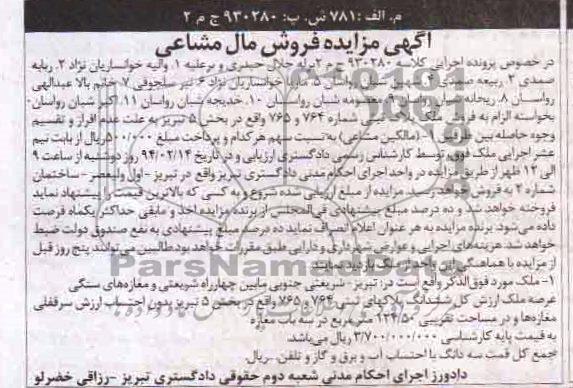 م. الف: ۷۸۱ ش. ب: ۹۳۰۲۸۰ ج م ۲
آگهی مزایده فروش مال مشاعی
در خصوص پرونده اجرایی کلاسه ۹۳۰۲۸۰ ج م ۲ له جلال حیدری و برعلیه ۱. والیه خوانساریان نژاد ۲. ربابه
صمدی ۳. ربیعه صمدی ۴. شبان رواسان ۵. خوانساریان نژاد ۶. نیر سلجوقی ۷. خانم بالا عبدالهی
رواسان ۸. ریحانه شبان رواسان ۹. معصومه شبان رواسان ۱۰. خدیجه شبان رواسان ۱۱. اکبر شبان رواسان
بخواسته الزام به فروش ملک پلاک ثبتی شماره ۷۶۴ و ۷۶۵ واقع در بخش ۵ تبریز به علت عدم افراز و تقسیم
وجوه حاصله بین طرفین (مالکین مشاعی) به نسبت سهم هر کدام و پرداخت مبلغ ۵۰۰/۰۰۰ ریال از بابت نیم
عشر اجرایی ملک فوق توسط کارشناس رسمی دادگستری ارزیابی و در تاریخ ۹۴/۰۲/۱۴ روز دوشنبه از ساعت ۹
الی ۱۲ ظهر از طریق مزایده در واحد اجرای احکام مدنی دادگستری تبریز واقع در تبریز - اول ولیعصر - ساختمان
شماره ۲ به فروش خواهد رسید. مزایده از مبلغ ارزیابی شده شروع و به کسی که بالاترین قیمت را پیشنهاد نماید
فروخته خواهد شد و ده درصد مبلغ پیشنهادی فی المجلس از برنده مزایده اخذ و مابقی حداکثر یکماه فرصت
داده می‌شود. برنده مزایده به هر عنوان اعلام انصراف نماید ده درصد مبلغ پیشنهادی به نفع صندوق دولت ضبط
خواهد شد. هزینه‌های اجرایی و عوارض شهرداری و دارایی طبق مقررات خواهد بود طالبین می‌توانند پنج روز قبل
از مزایده با هماهنگی این واحد از ملک بازدید نمایند.
۱- ملک مورد فوق الذکر واقع است در: تبریز - شریعتی جنوبی مابین چهارراه شریعتی و مغازه‌های سنگی
عرصه ملک ارزش کل ششدانگ پلاکهای ثبتی ۷۶۴ و ۷۶۵ واقع در بخش ۵ تبریز بدون احتساب ارزش سرقفلی
مغازه‌ها و در مساحت تقریبی ۱۲۴/۵۰ متر مربع در سه باب مغازه
به قیمت پایه کارشناسی ۳/۷۰۰/۰۰۰/۰۰۰ ریال می‌باشد.
جمع کل قمت سه دانگ با احتساب آب و برق و گاز و تلفن - ریال.
دادورز اجرای احکام مدنی شعبه دوم حقوقی دادگستری تبریز - رزاقی خضرلو
ParsNamadData